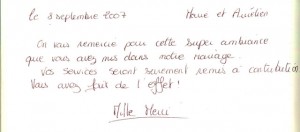 le 8 septembre 2007 Marie et Aurélien
On vous remercie pour cette super ambiance
que vous avez mis dans notre mariage.
Vos services seront surement remis à contribution
Vous avez fait de l'effet!
Mille Merci